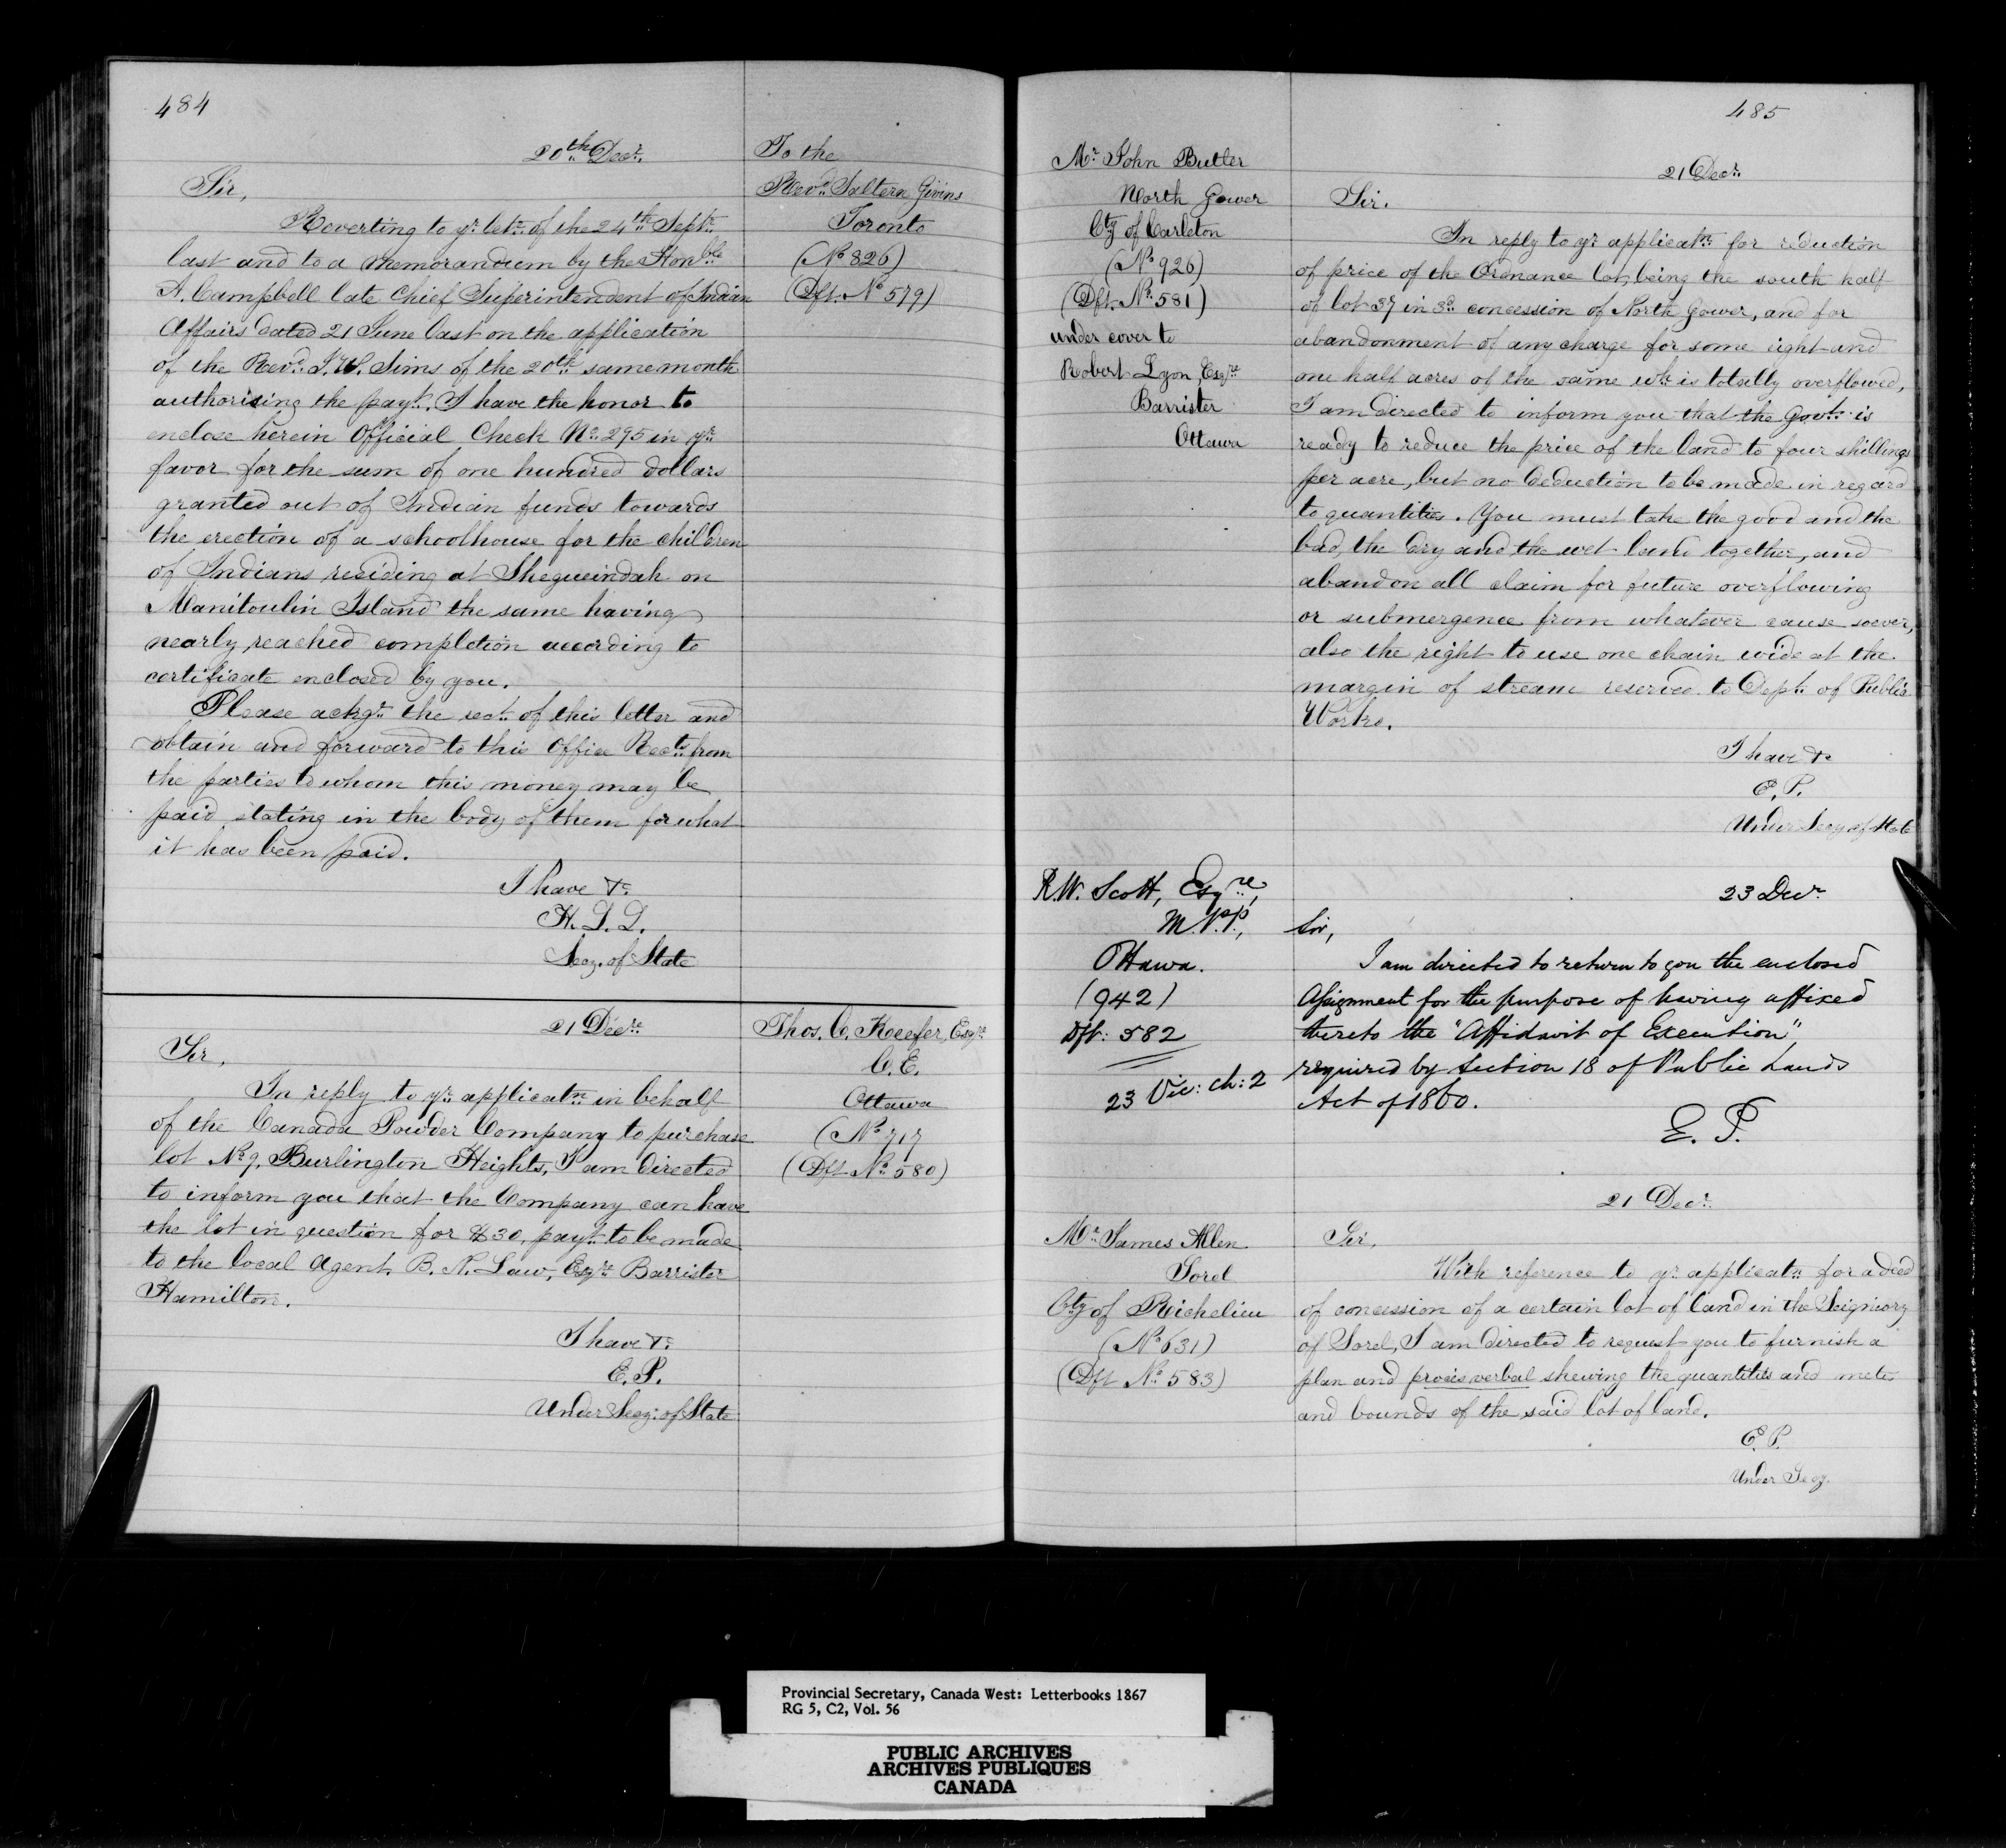 484
20th Decr.
Sir,
Reverting to yr letr of the 24th Septr.
last and to a Memorandum by the Honble
A. Campbell late Chief Superintendent of Indian
Affairs dated 21 June last on the application
of the Revd. J. W. Sims of the 20th same month
authorising the payt. I have the honor to
enclose herein Official Check No. 295 in yr
favor for the sum of one hundred dollars
granted out of Indian funds towards
the erection of a schoolhouse for the children
of Indians residing at Shegueindah on
Manitoulin Island the same having
nearly reached completion according to
certificate enclosed by you.
Please ackge the rect. of this letter and
obtain and forward to this Office Rects from
the parties to whom this money may be
paid stating in the body of them for what
it has been paid.
I have &c
H. L. L.
Secy. of State
To the
Revd. Saltern Givins
Toronto
(No 826)
(Dft. No 579)
21 Decr.
Sir,
In reply to yr applicatn in behalf
of the Canada Powder Company to purchase
lot No 9, Burlington Heights, I am directed
to inform you that the Company can have
the lot in question for $30, payt. to be made
to the local Agent, B. N. Law, Esqre Barrister
Hamilton.
I have &c
E. P.
Under Secy. of State
Thos. C. Keefer, Esqre
C. E.
Ottawa
(No 717
(Dft No 580)
485
Mr John Butler
North Gower
Cty of Carleton
(No 926)
(Dft. No 581)
under cover to
Robert Lyon, Esqre
Barrister
Ottawa
21 Decr.
Sir.
In reply to yr applicatn for reduction
of price of the Ordnance lot, being the south half
of lot 37 in 3d concession of North Gower, and for
abandonment of any charge for some eight and
one half acres of the same wh is totally overflowed,
I am directed to inform you that the Govt. is
ready to reduce the price of the land to four shillings
per acre, but no deduction to be made in regard
to quantities. You must take the good and the
bad, the dry and the wet land together, and
abandon all claim for future overflowing
or submergence from whatever cause soever,
also the right to use one chain wide at the
margin of stream reserved to Dept. of Public
Works.
I have &c
E. P.
Under Secy of State
R. W. Scott, Esqre,
M.P.P.,
Ottawa.
(942)
Dft: 582
23 Vic: ch: 2
23 Decr
Sir,
I am directed to return to you the enclosed
Assignment for the purpose of having affixed
thereto the "Affidavit of Execution",
required by Section 18 of Public Lands
Act of 1860.
E. P.
21 Decr.
Mr James Allen
Sorel
Cty of Richelieu
(No 631)
(Dft No 583)
Sir,
With reference to yr applicatn for a deed
of concession of a certain lot of land in the Seigniory
of Sorel, I am directed to request you to furnish a
plan and procès verbal shewing the quantities and metes
and bounds of the said lot of land.
E. P.
Under Secy.
Provincial Secretary, Canada West: Letterbooks 1867
RG 5, C2, Vol. 56
PUBLIC ARCHIVES
ARCHIVES PUBLIQUES
CANADA